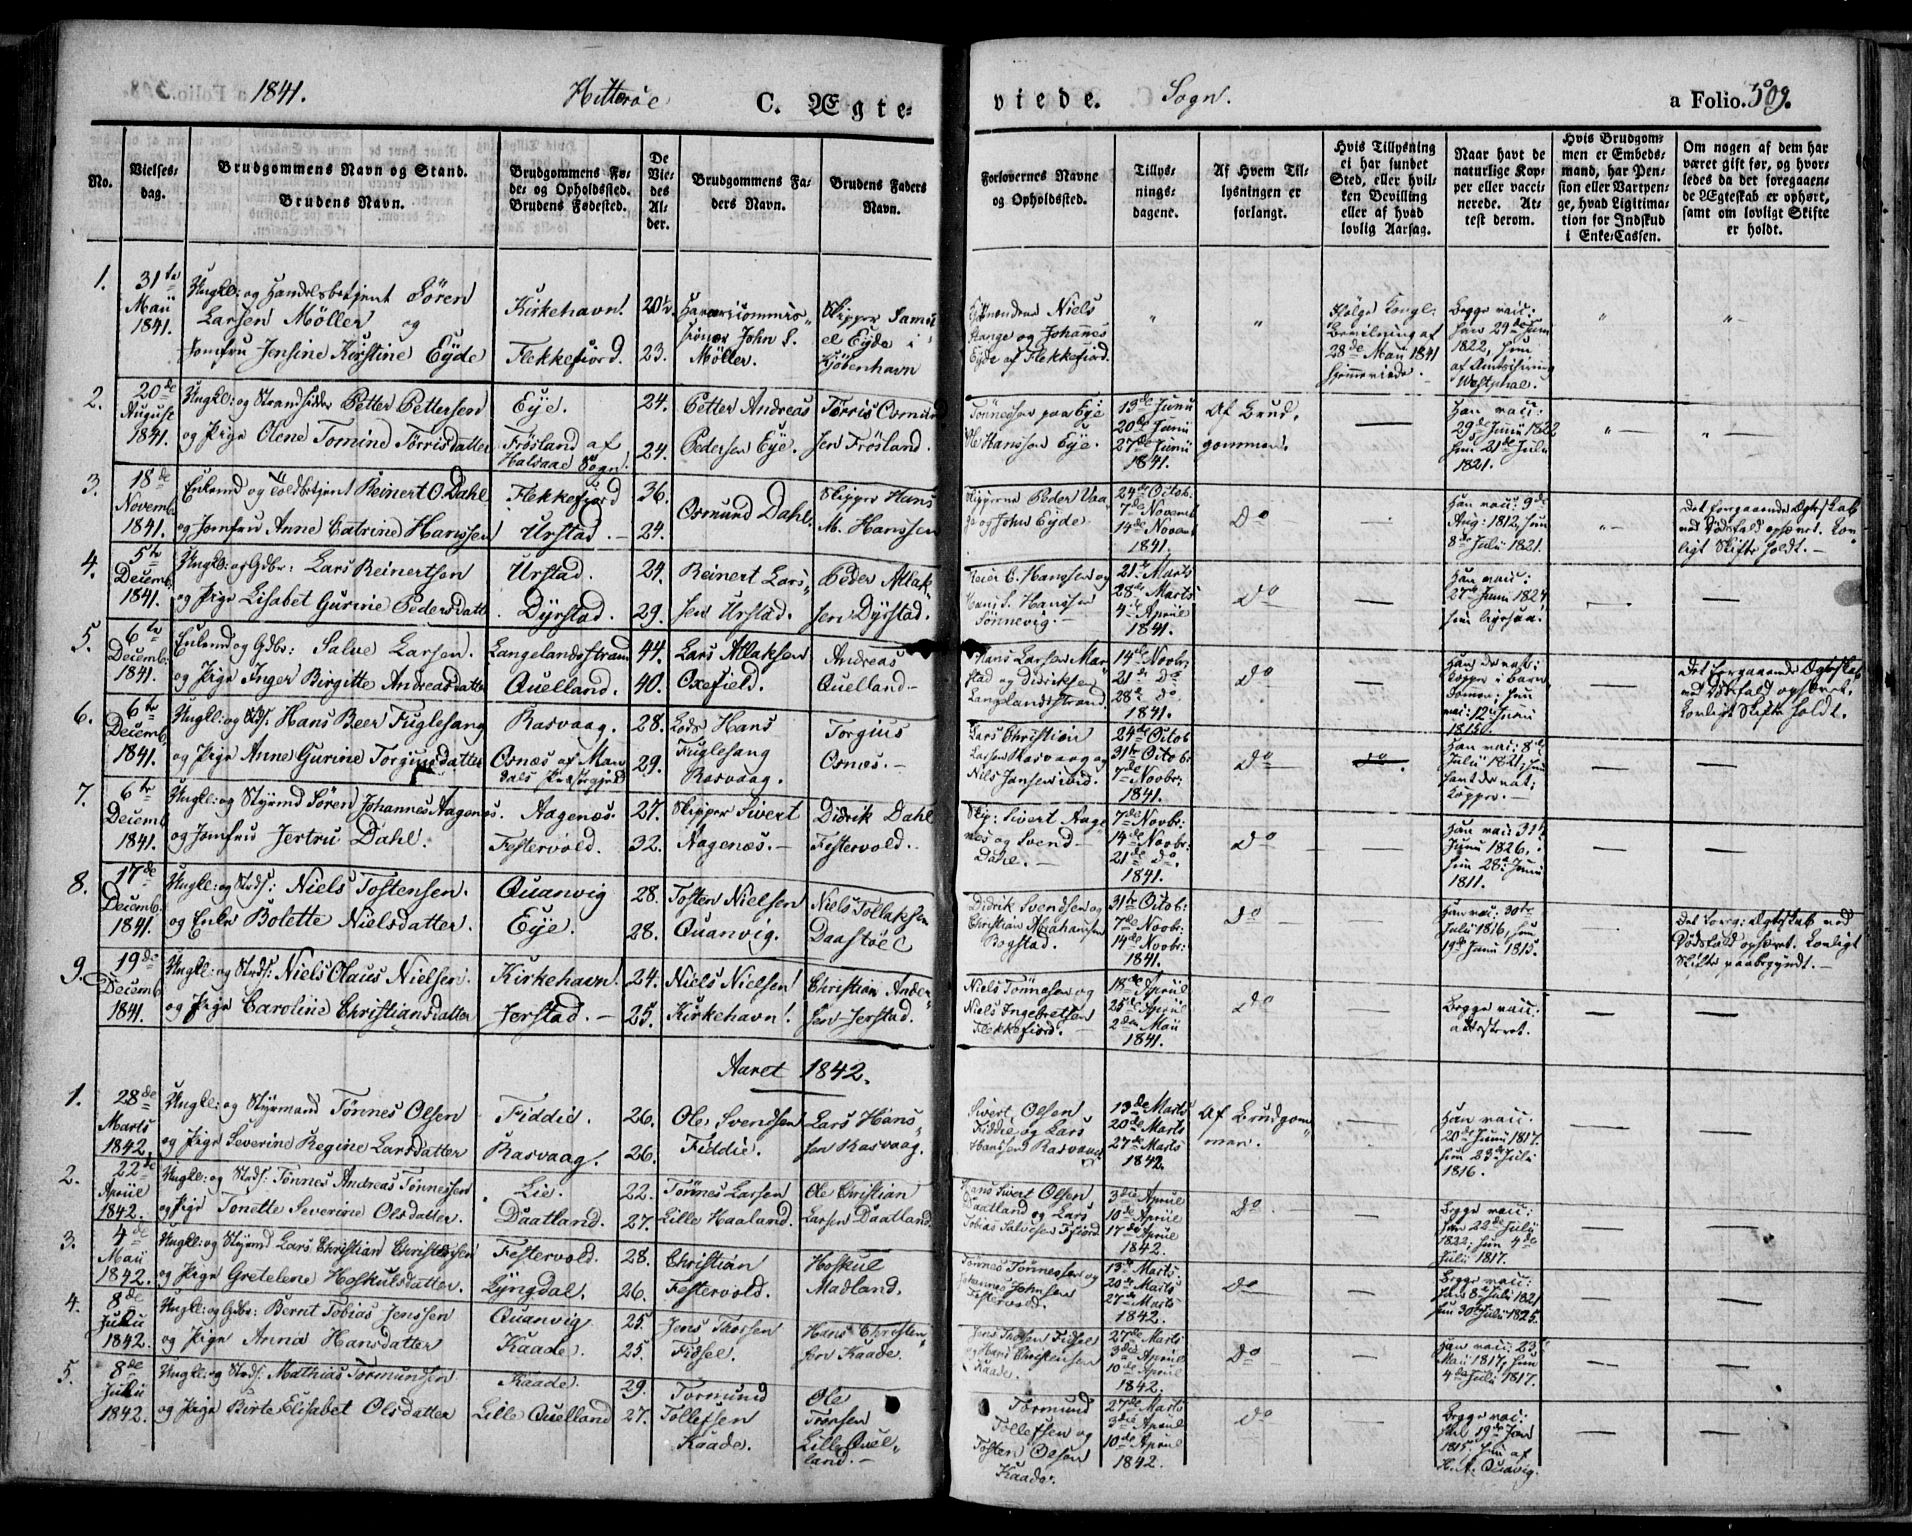 1841. Hitterøe C. Ægte- viede. Sogn. a Folio. 509.
No.
Vielses-
dag.
Brudgommens Navn og Stand.
Brudens Navn.
Brudgommens Fø-
de- og Opholdssted.
Brudens Fødested.
De
Vie-
des
Al-
der.
Brudgommens Fa-
ders Navn.
Brudens Faders
Navn.
Forlovernes Navne
og Opholdssted.
Tillys-
nings-
dagene.
Af Hvem Til-
lysningen er
forlangt.
Hvis Tillysning
ei har fundet
Sted, eller hvil-
ken Bevilling
eller af hvad
lovlig Aarsag.
Naar havt de
naturlige Kop-
per eller vacci-
nerede. At-
test derom.
Hvis Brudgom-
men er Embeds-
mand, har Pen-
sion eller Vartpen-
ge, hvad Ligitima-
tion for Indskud
i Enke-Cassen.
Om nogen af dem har
været gift før, og hvor-
ledes da det foregaaen-
de Ægteskab er ophørt,
samt om lovligt Skifte
er holdt.
1.
31te
Maii
1841.
Ungkl: og Handelsbetjent Sören
Larsen Möller og
Jomfru Jensine Kirstine Eyde
Kirkehavn.
Flekkefiord.
20½
23.
John L.
Möller.
Skipper Samu
el Eyde i
Kjöbenhavn
Niels
Stange og Johannes
Eyde af Flekkefiord.
" "
Ifölge Kongl.
Bevilning af
28de Maii 1841
hjemmeviede.
Begge vacc:
ham 29de Junii
1822, hun
af
Westphal.
" "
2.
20de
August
1841.
Ungkl: og Strandsidder Petter Pettersen
og Pige Olene Tomine Törrisdatter
Eye.
Frösland af
Halsaae Sogn.
24.
24.
Petter Andreas
Pedersen Eye.
Törris Osmund
sen Frösland.
Tönnessen paa Eye
Hanssen Eye.
13de Junii
20de Junii
27de Junii
1841.
Af Brud-
gommen.
—
Han vacc:
29de Junii 1822
hun 21de Julii
1821.
" — " —
3.
18de
Novemb.
1841.
Enkemd og Toldbetjent Reinert O. Dahl
og Jomfru Anne Catrine Hanssen
Flekkefiord
Urstad. —
36.
24.
Osmund Dahl.
Skipper Hans
M. Hanssen
Skipperne Peder Vaa
ge og John Eyde.
24de Octob:
7de Novemb
14de Novemb
1841.
Do
—
Han vacc: 9de
Aug: 1812, hun
8de Julii 1821.
" —
Det forgaaende Ægteskab
ved Dödsfald ophævet. Lov-
ligt Skifte holdt. —
4.
5te
Decemb.
1841.
Ungkl: og Gdbr: Lars Reinertsen
og Pige Lisabet Gurine Pedersdatter
Urstad.
Dyrstad.
24.
29.
Reinert Lars-
sen Urstad.
Peder Atlak-
sen Dyrstad.
Reier C. Hanssen og
Hans S. Hanssen
Sönnevig. —
21de Marts
28de Marts
4de April
1841.
Do
—
Han vacc:
27de Junii 1824
hun ligesaa.
— —
5.
6te
Decemb:
1841.
Enkemd og Gdbr: Salve Larsen.
og Pige Inger Birgitte Andreasdatter
Langelandsstrand
Quelland.
44.
40.
Lars Atlaksen
Oxefield.
Andreas
Quelland —
Hans Larsen Mar
stad og Didriksen
Langlandsstrand.
14de Novbr:
21de Do
28de Do
1841.
Do
—
Han de nat:
Kopper i Barn-
dommen, hun
vacc: 12te Junii
1813.
—
Det forgaaende Ægteskab
ved Dödsfald ophævet.
Lovligt Skifte holdt.
6.
6te
Decemb.
1841.
Ungkl: og Stds: Hans Beer Fuglesang
og Pige Anne Gurine Torgiusdatter
Rasvaag.
Osnæs af Man
dals Præstegield
28.
29.
Lods Hans
Fuglesang
Rasvaag.
Torgius
Osnæs. —
Lars Christian
Larsen Rasvaag og
Nils Jansen ibid.
24de Octob:
31te Octob:
7de Novbr:
1841.
Do
Do.
Han vacc: 8de
Julii 1821, hun
havt de nat:
Kopper. —
— —
7.
6te
Decemb
1841.
Ungkl: og Styrmd Sören Johannes Aagenæs.
og Jomfru Jertru Dahl.
Aagenæs.
Festervold.
27.
32.
Skipper Sivert
Aagenæs. —
Didrik Dahl
Festervold. —
Skip: Sivert Aage
næs og Svend
Dahl. —
7de Novbr:
14de Novbr:
21de do.
1841.
Do
—
Han vacc 31
Junii 1826,
hun 28de Junii
1811.
— —
8.
17de
Decemb.
1841.
Ungkl: og Stds: Niels Tostensen.
og Enke Bolette Nielsdatter.
Quanvig
Eye.
28.
28.
Tosten Nielsen
Quanvig.
Niels Tollaksen
Daastöe
Didrik Svendsen og
Christian Abrahamsen
Rogstad.
31te Octob:
7de Novbr:
14de Novbr:
1841.
Do
—
Han vacc: 30te
Julii 1816, hun
19de Junii 1815.
—
Det forrg: Ægteskab ved
Dödsfald ophævet. Lovligt
Skifte paabegyndt. —
9.
19de
Decemb
1841.
Ungkl: og Stds: Niels Olaus Nielsen.
og Pige Caroline Christiansdatter
Kirkehavn.
Jerstad. —
24.
25.
Niels Nielsen
Kirkehavn.
Christian Ander
sen Jerstad.
Niels Tönnesen og
Niels Ingebretsen
Flekkefiord. —
18de April
25de April
2den Maii
1841.
Do
—
Begge vacc:
attesteret.
— —
Aaret 1842.
1.
28de
Marts
1842.
Ungkl: og Styrmand Tönnes Olsen
og Pige Severine Regine Larsdatter
Fiddie.
Rasvaag.
26.
26.
Ole Svendsen
Fiddie.
Lars Hans-
sen Rasvaag.
Sivert Olsen
Fiddie og Lars
Hanssen Rasvaag
13de Marts
20de Marts
27de Marts
1842.
Af Brudgom-
men.
—
Han vacc:
20de Junii 1817.
hun 23de Julii
1816.
— —
2.
22de
April
1842.
Ungkl: og Stds: Tönnes Andreas Tönnessen
og Pige Tonette Severine Olsdatter.
Lie.
Daatland.
22.
27.
Tönnes Larsen
Lille Haaland.
Ole Christian
Larsen Daatland.
Hans Sivert Olsen
Daatland og Lars
Tobias Salvesen
3die April
10de April
17de April
1842.
Do
—
Begge vacc:
han 22de Julii
1822, hun 4de
Julii 1817.
— —
3.
4de
Maii
1842.
Ungkl: og Styrmd Lars Christian Christensen
og Pige Gretelene Hoskulsdatter.
Festervold.
Lyngdal.
28.
26.
Christian
Festervold.
Hoskul
Madland.
Tönnes Tönnessen og
Johannes Johnsen
Festervold.
13de Marts
20de Marts
27de Marts
1842.
Do
—
Begge vacc:
han 8de Julii 1821
hun 30te Julii 1825.
— —
4.
8de
Julii
1842.
Ungkl: og Gdbr: Berrit Tobias Jenssen
og Pige Anna Hansdatter
Quanvig
Kaade.
25.
25.
Jens Thorsen
Fidsel.
Hans Christen-
sen Kaade.
Jens Thorsen Fidsel
og Hans Christensen
Kaade.
27de Marts
3die April
10de April
1842.
Do
—
Han vacc: 23
Maii 1817, hun
4de Julii 1817.
— —
5.
8de
Julii
1842.
Ungkl: og Stds: Mathias Tormundsen
og Pige Birte Elisabet Olsdatter
Kaade.
Lille Quelland
29.
27.
Tormund
Tollefsen
Kaade.
Ole
Törresen
Lille Quel-
land. —
Tormund
Tollefsen og
Tosten Olsen
Kaade.
27de Marts
3die April
10de April
1842.
Do
—
Begge vacc:
han 19de Jan
1815, hun af
H. A. Quavig.
— —